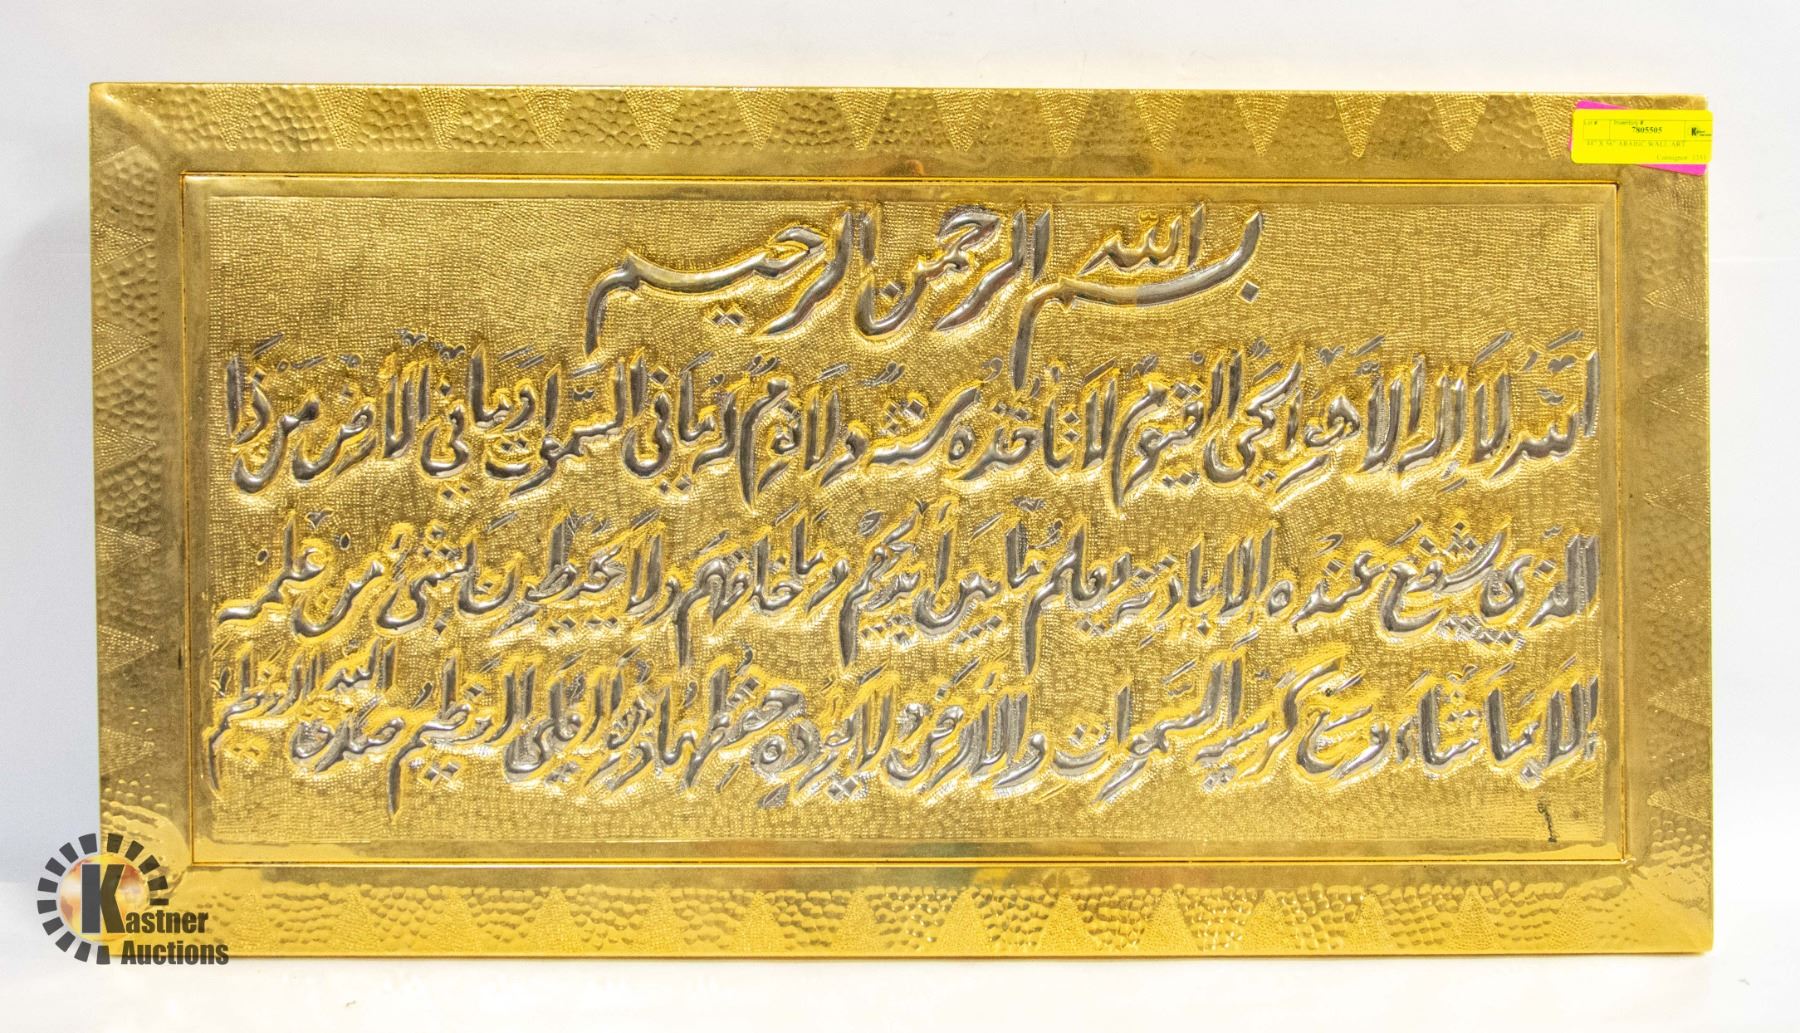 بسم الله الرحمن الرحيم
اللَّهُ لَا إِلَٰهَ إِلَّا هُوَ الْحَيُّ الْقَيُّومُ لَا تَأْخُذُهُ سِنَةٌ وَلَا نَوْمٌ لَهُ مَا فِي السَّمَوَاتِ وَمَا فِي الْأَرْضِ مَنْ ذَا
الَّذِي يَشْفَعُ عِنْدَهُ إِلَّا بِإِذْنِهِ يَعْلَمُ مَا بَيْنَ أَيْدِيهِمْ وَمَا خَلْفَهُمْ وَلَا يُحِيطُونَ بِشَيْءٍ مِنْ عِلْمِهِ
إِلَّا بِمَا شَاءَ وَسِعَ كُرْسِيُّهُ السَّمَوَاتِ وَالْأَرْضَ وَلَا يَئُودُهُ حِفْظُهُمَا وَهُوَ الْعَلِيُّ الْعَظِيمُ صدق الله العظيم
Lot # Inventory # 7805505
X 56" ARABIC WALL ART
Consignor
Kastner
Auctions